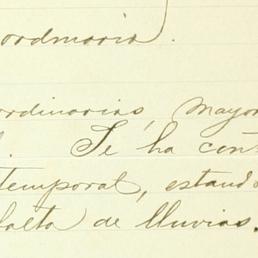 ordinaria.
ordinarias, mayor
Se ha con
temporal, estando
falta de lluvias.